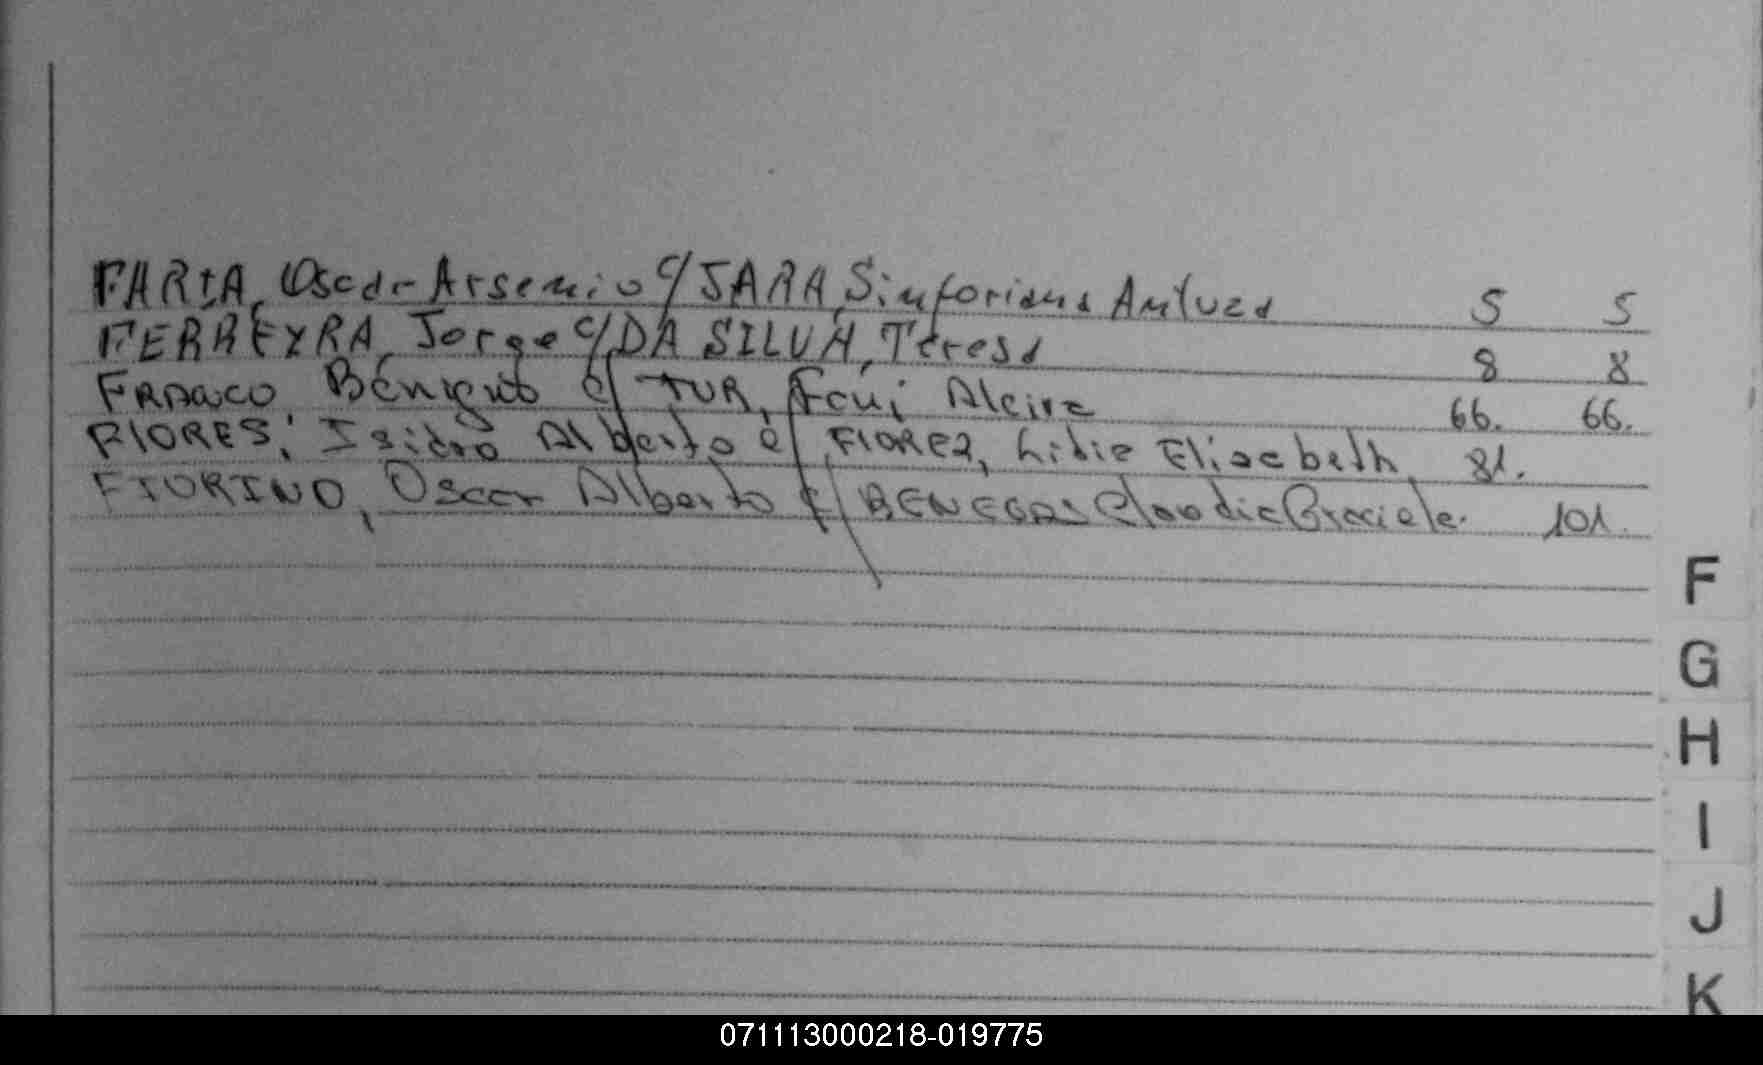 FARIA, Oscar Arsenio c/ JARA, Sinforiana 5 5
FERREYRA, Jorge c/ DA SILVA, Teresa 8 8
FRANCO Benigno c/ TUR, Alcira 66. 66.
FLORES, Isidro Alberto c/ FLOREZ, Lidia Elisabeth 81.
FIORINO, Oscar Alberto c/ BENEGAS Claudia Graciela. 101.
F
G
H
I
J
K
071113000218-019775